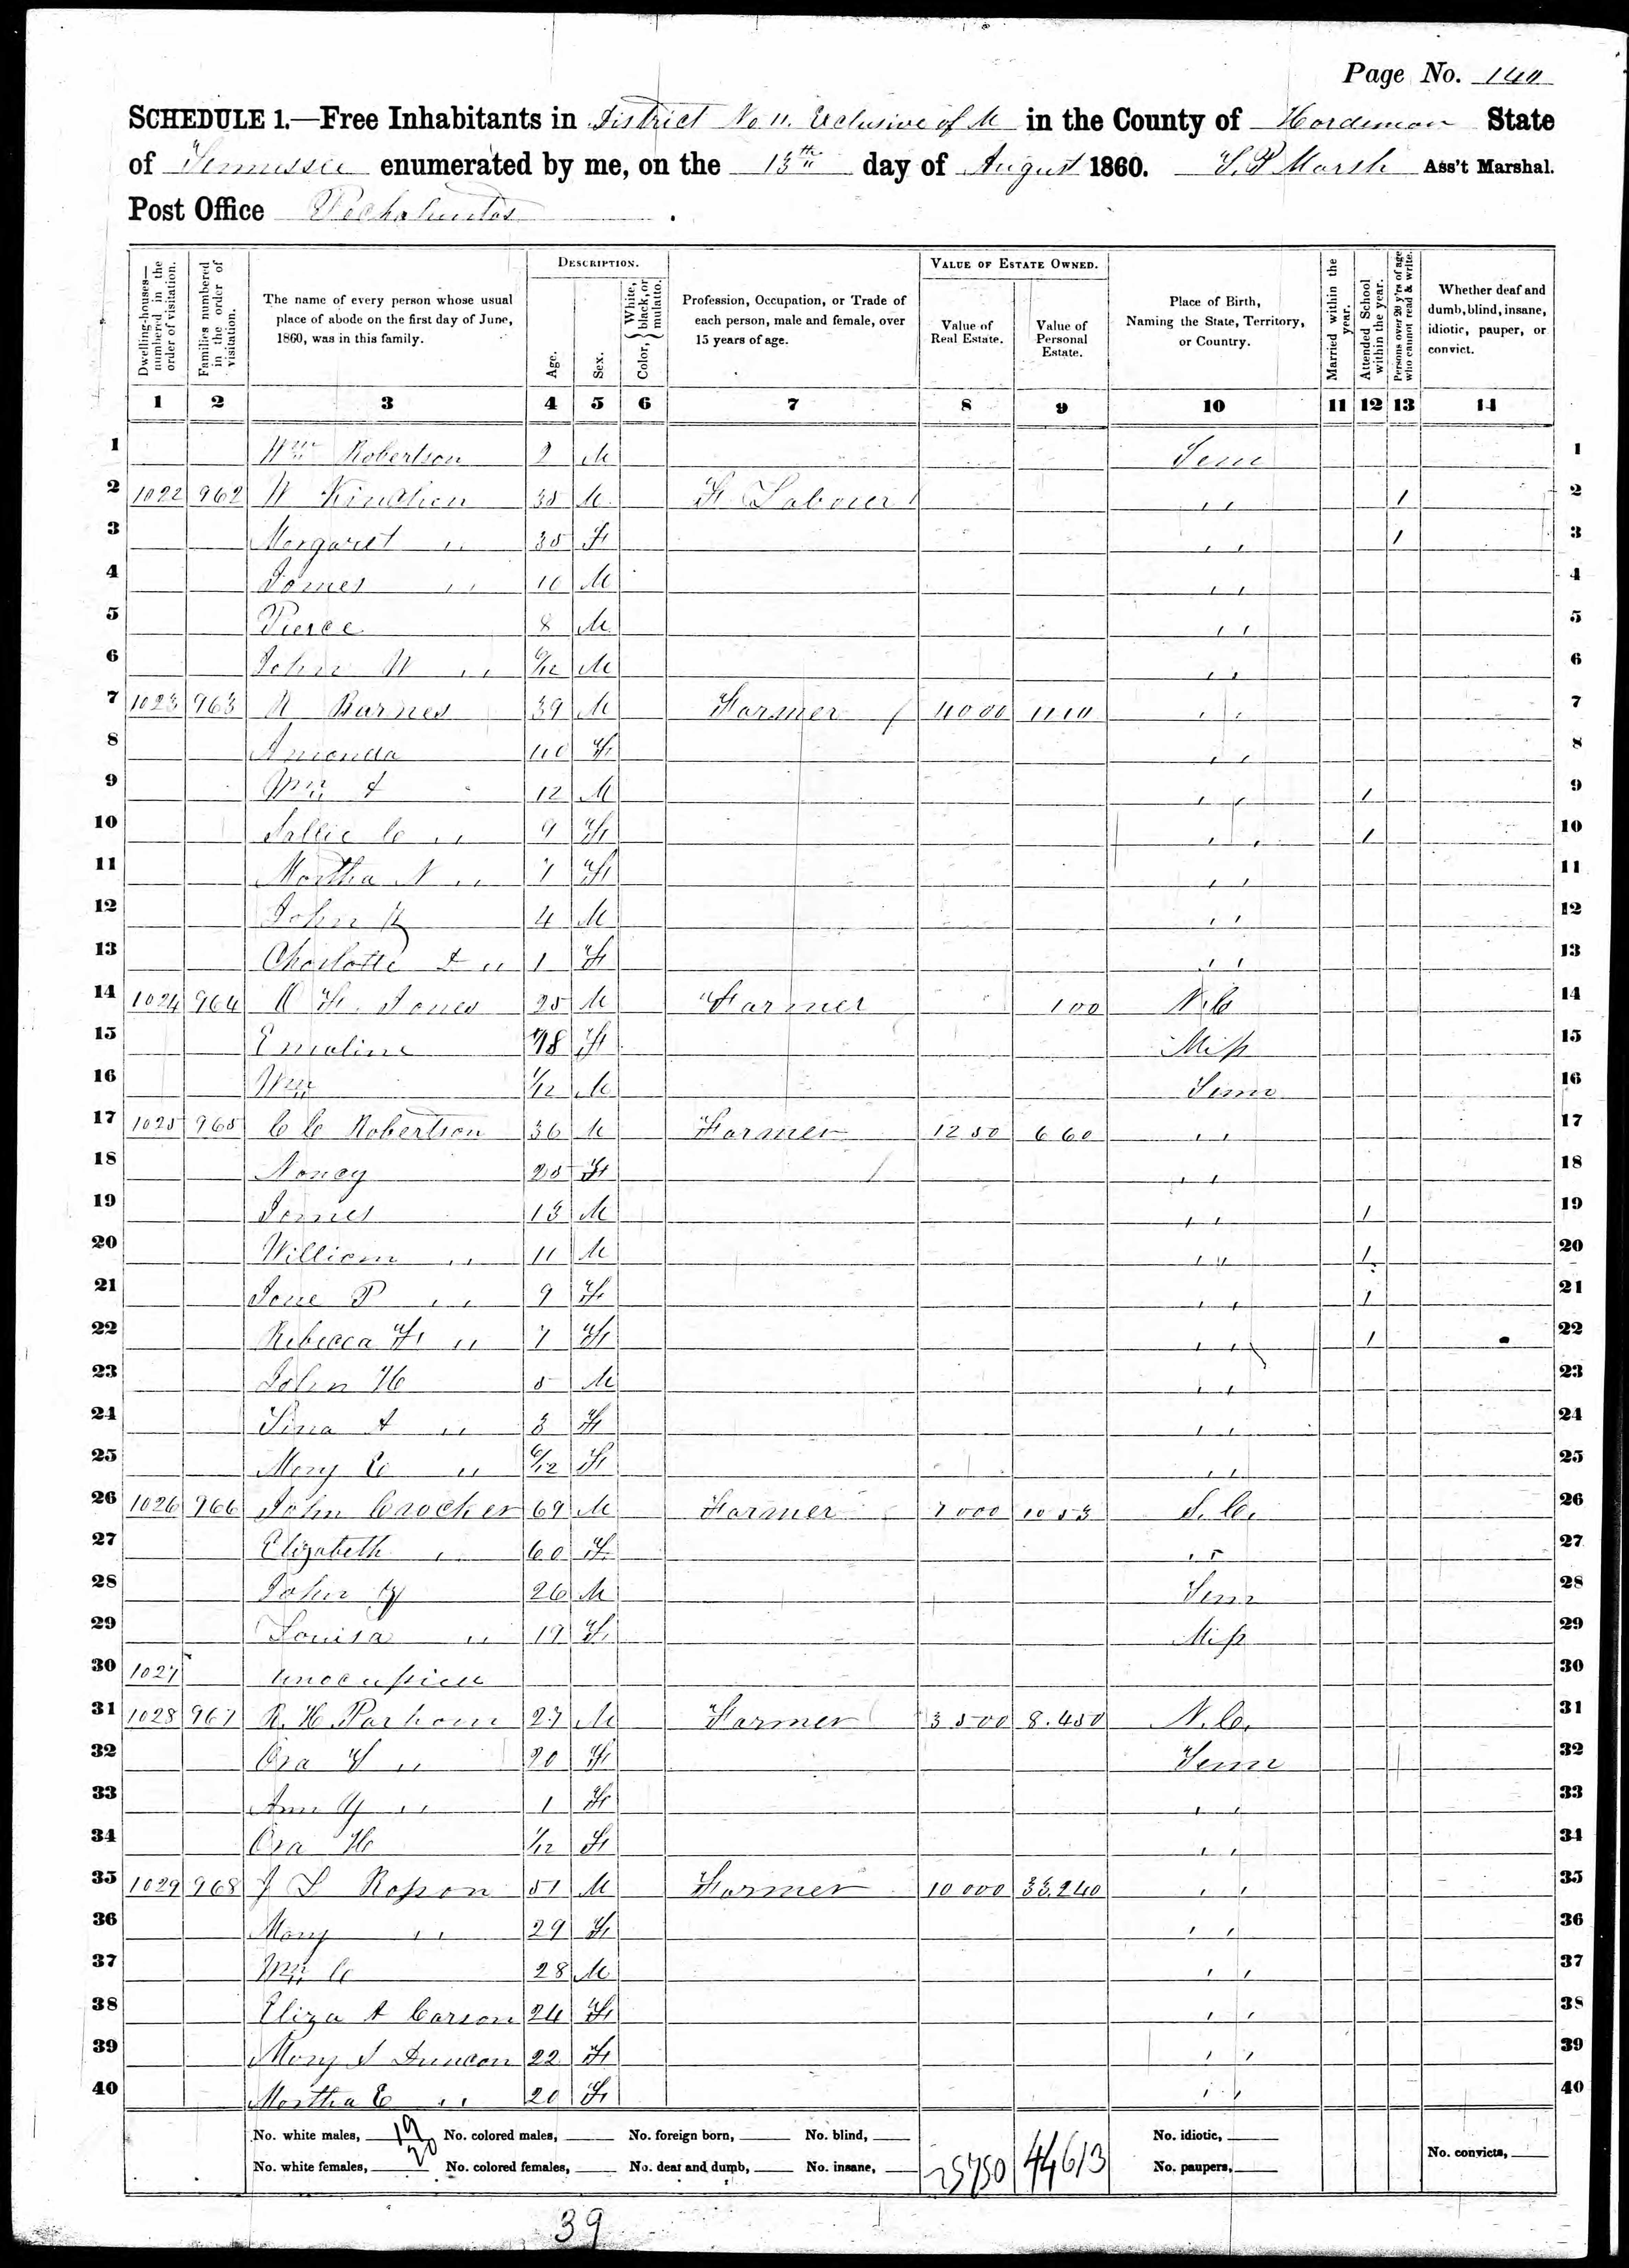 Page No. 140
SCHEDULE 1.—Free Inhabitants in District No 11. Exclusive of M in the County of Hardeman State
of Tennessee enumerated by me, on the 13th day of August 1860. S. P Marsh Ass't Marshal.
Post Office Pochahuntas .
DESCRIPTION. VALUE OF ESTATE OWNED.
Dwelling-houses—numbered in the order of visitation. Families numbered in the order of visitation. The name of every person whose usual place of abode on the first day of June, 1860, was in this family. Age. Sex. Color, { White, black, or mulatto. Profession, Occupation, or Trade of each person, male and female, over 15 years of age. Value of Real Estate. Value of Personal Estate. Place of Birth, Naming the State, Territory, or Country. Married within the year. Attended School within the year. Persons over 20 y'rs of age who cannot read & write. Whether deaf and dumb, blind, insane, idiotic, pauper, or convict.
1 2 3 4 5 6 7 8 9 10 11 12 13 14
1 Wm Robertson 2 M Tenn 1
2 1022 962 W 35 M F Labour " " / 2
3 Margaret " 35 F " " / 3
4 James " 10 M " " 4
5 Pierce 8 M " " 5
6 John W " M " " 6
7 1023 963 R Barnes 39 M Farmer 4000 1110 " " 7
8 Amanda 40 F " " 8
9 Wm A 12 M " " / 9
10 Sallie C " 9 F " " / 10
11 Martha N " 7 F " " 11
12 John R 4 M " " 12
13 Charlotte A " 1 F " " 13
14 1024 964 F. Jones 25 M Farmer 100 N.C 14
15 Emaline 18 F Miss 15
16 Wm 1/12 M Tenn 16
17 1025 965 C C Robertson 36 M Farmer 1250 660 " " 17
18 Nancy F " " 18
19 James 13 M " " / 19
20 William " 11 M " " / 20
21 Jane P " 9 F " " / 21
22 Rebecca F " 7 F " " / 22
23 John H 5 M " " 23
24 A " 3 F " " 24
25 Mary E " 6/12 F " " 25
26 1026 966 John Crocker 69 M Farmer 7000 1053 S.C. 26
27 Elizabeth " 60 F " " 27
28 John Y 26 M Tenn 28
29 Louisa " 19 F Miss 29
30 1027 unocupied 30
31 1028 967 R. H. Parham 27 M Farmer 3500 8.450 N.C. 31
32 Ora " 20 F Tenn 32
33 Ann " 1 F " " 33
34 Ora H 1/12 F " " 34
35 1029 968 J L Rosson 51 M Farmer 10000 33.240 " " 35
36 Mary " 29 F " " 36
37 Wm C 28 M " " 37
38 Eliza A Carson 24 F " " 38
39 Mary S Duncan 22 F " " 39
40 Martha E " 20 F " " 40
No. white males, 19 No. colored males, No. foreign born, No. blind, 25750 44613 No. idiotic, No. convicts,
No. white females, 20 No. colored females, No. deaf and dumb, No. insane, No. paupers,
39